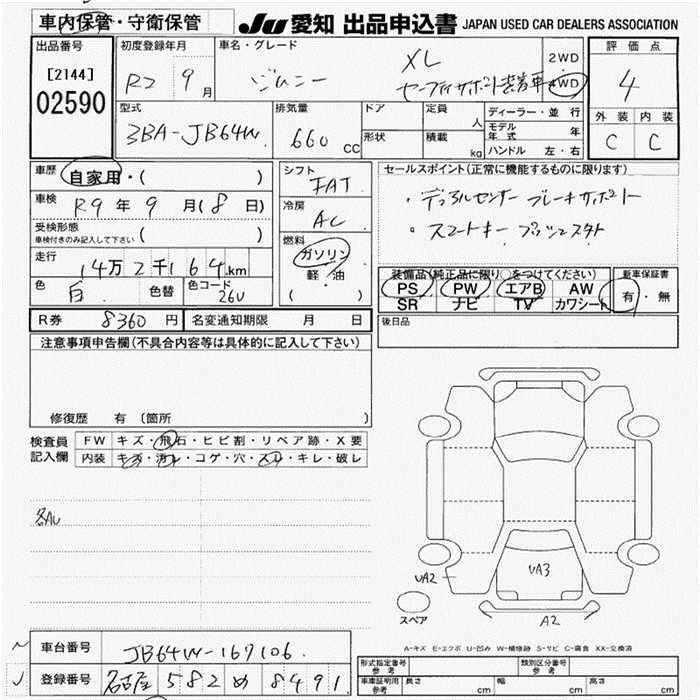 車内保管・守衛保管
JU 愛知 出品申込書 JAPAN USED CAR DEALERS ASSOCIATION
出品番号
[2144]
02590
初度登録年月
R2 9月
車名・グレード
ジムニー
XL
セーフティサポート装着車
2WD
4WD
評価点
4
外装 内装
C C
型式
3BA-JB64W
排気量
660 cc
ドア
形状
定員 人
積載 kg
ディーラー・並行
モデル年式 年
ハンドル 左・右
車歴
自家用・( )
車検
R9年9月(8日)
受検形態
車検付きのみ記入して下さい ( )
走行
14万2千164km
色 白 色替
色コード 26U
シフト
FAT
冷房
AC
燃料
ガソリン
軽・油
( )
セールスポイント(正常に機能するものに限ります)
・デュアルセンサーブレーキサポート
・スマートキー プッシュスタート
装備品(純正品に限り○をつけてください)
PS PW エアB AW
SR ナビ TV カワシート
新車保証書
有・無
R券 8360円
名変通知期限 月 日
後日品
注意事項申告欄(不具合内容等は具体的に記入して下さい)
修復歴 有(箇所 )
検査員記入欄
FW キズ・飛石・ヒビ割・リペア跡・X要
内装 キズ・汚れ・コゲ・穴・スレ・キレ・破レ
各AU
UA2
UA3
A2
スペア
A-キズ E-エクボ U-凹み W-補修跡 S-サビ C-腐食 XX-交換済
車台番号 JB64W-167106
登録番号 名古屋 582 め 8491
型式指定番号 参考
類別区分番号 参考
車庫証明用 参考
長さ cm 幅 cm 高さ cm